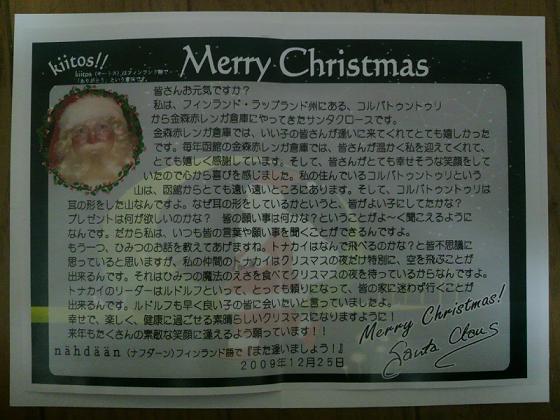 kiitos!!
kiitos（キートス）はフィンランド語で
「ありがとう」という意味です。
Merry Christmas
皆さんお元気ですか？
私は、フィンランド・ラップランド州にある、コルバトゥントゥリ
から金森赤レンガ倉庫にやってきたサンタクロースです。
金森赤レンガ倉庫では、いい子の皆さんが逢いに来てくれてとても嬉しかった
です。毎年函館の金森赤レンガ倉庫では、皆さんが温かく私を迎えてくれて、
とても嬉しく感謝しています。そして、皆さんがとても幸せそうな笑顔をして
いたので心から喜びを感じました。私の住んでいるコルバトゥントゥリという
山は、函館からとても遠い遠いところにあります。そして、コルバトゥントゥリは
耳の形をした山なんですよ。なぜ耳の形をしているかというと、皆がよい子にしてたかな？
プレゼントは何が欲しいのかな？　皆の願い事は何かな？ということがよ～く聞こえるように
なんです。だから私は、いつも皆の言葉や願い事を聞くことができるんですよ。
もう一つ、ひみつのお話を教えてあげますね。トナカイはなんで飛べるのかな？と皆不思議に
思っていると思いますが、私の仲間のトナカイはクリスマスの夜だけ特別に、空を飛ぶことが
出来るんです。それはひみつの魔法のえさを食べてクリスマスの夜を待っているからなんですよ。
トナカイのリーダーはルドルフといって、とっても頼りになって、皆の家に迷わず行くことが
出来るんです。ルドルフも早く良い子の皆に会いたいと言っていましたよ。
幸せで、楽しく、健康に過ごせる素晴らしいクリスマスになりますように！
来年もたくさんの素敵な笑顔に逢えるよう願っています！！
nähdään（ナフダーン）フィンランド語で『また逢いましょう！』
2009年12月25日
Merry Christmas!
Santa Claus